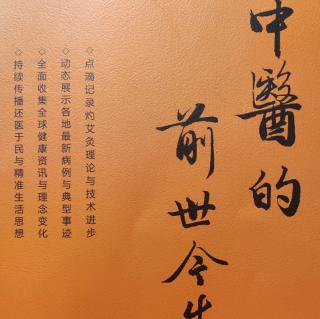 中醫的
前世今生
◇点滴记录灼艾灸理论与技术进步
◇动态展示各地最新病例与典型事迹
◇全面收集全球健康资讯与理念变化
◇持续传播还医于民与精准生活思想